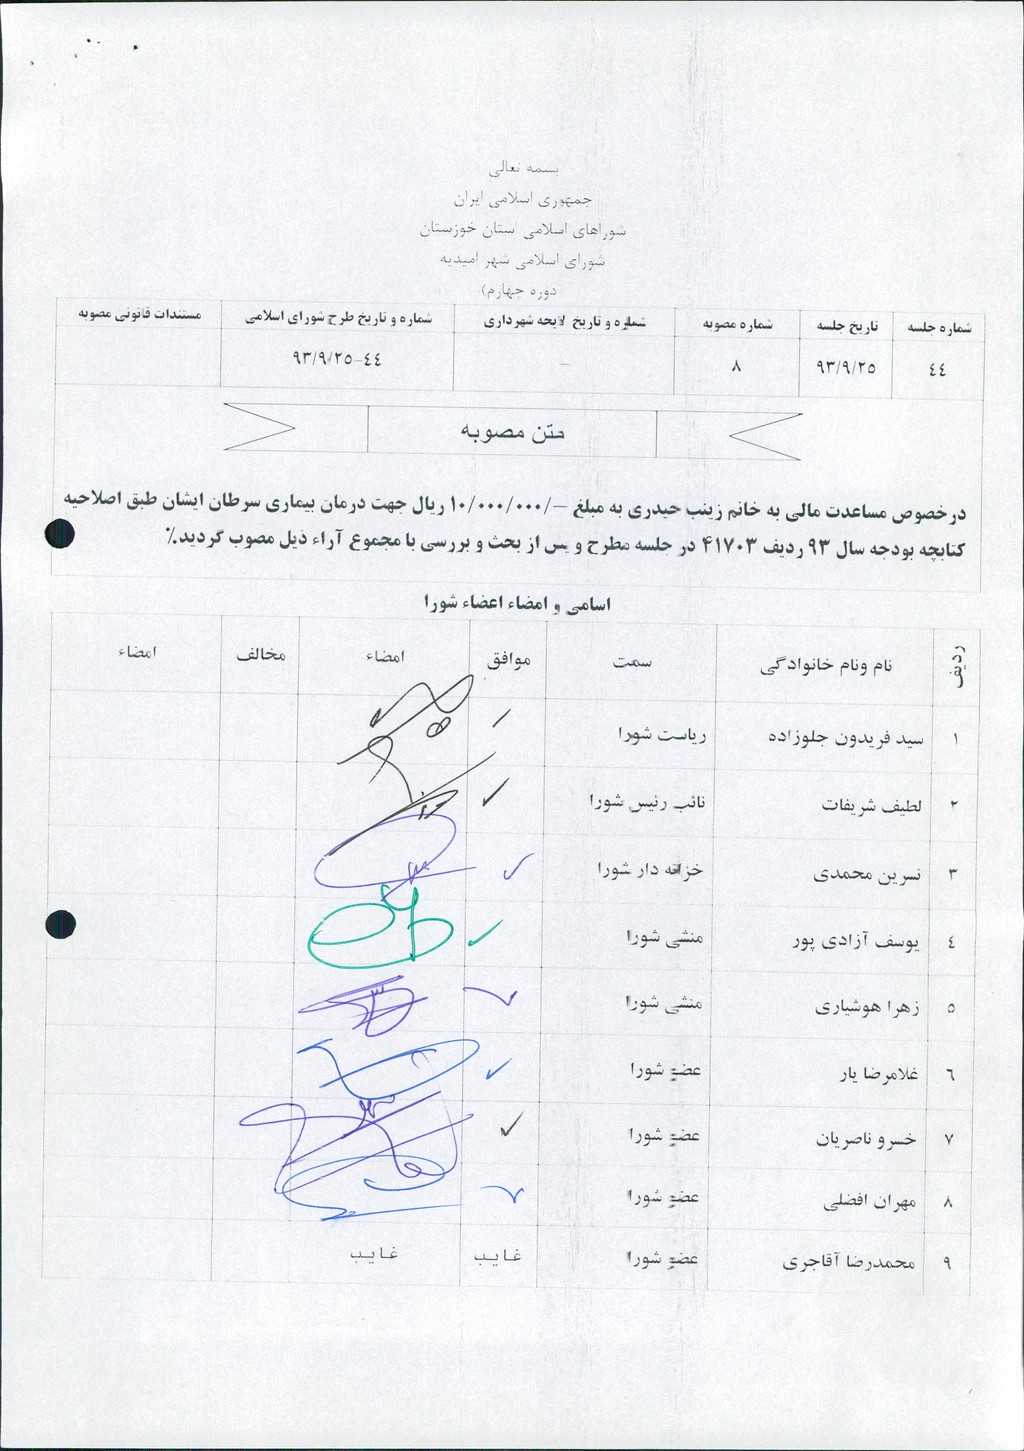 بسمه تعالی
جمهوری اسلامی ایران
شوراهای اسلامی ستان خوزستان
شورای اسلامی شهر امیدیه
دوره چهارم)
شماره جلسه تاریخ جلسه شماره مصوبه شماره و تاریخ لایحه شهرداری شماره و تاریخ طرح شورای اسلامی مستندات قانونی مصوبه
٤٤ ۹۳/۹/۲۵ ۸ – ٤٤-۹۳/۹/۲۵
متن مصوبه
درخصوص مساعدت مالی به خانم زینب حیدری به مبلغ –/۱۰/۰۰۰/۰۰۰ ریال جهت درمان بیماری سرطان ایشان طبق اصلاحیه
کتابچه بودجه سال ۹۳ ردیف ۴۱۷۰۳ در جلسه مطرح و پس از بحث و بررسی با مجموع آراء ذیل مصوب گردید.٪
اسامی و امضاء اعضاء شورا
ردیف نام ونام خانوادگی سمت موافق امضاء مخالف امضاء
۱ سید فریدون جلوزاده ریاست شورا
۲ لطیف شریفات نائب رئیس شورا
۳ نسرین محمدی خزانه دار شورا
٤ یوسف آزادی پور منشی شورا
۵ زهرا هوشیاری منشی شورا
٦ غلامرضا یار عضو شورا
۷ خسرو ناصریان عضو شورا
۸ مهران افضلی عضو شورا
۹ محمدرضا آقاجری عضو شورا غایب غایب